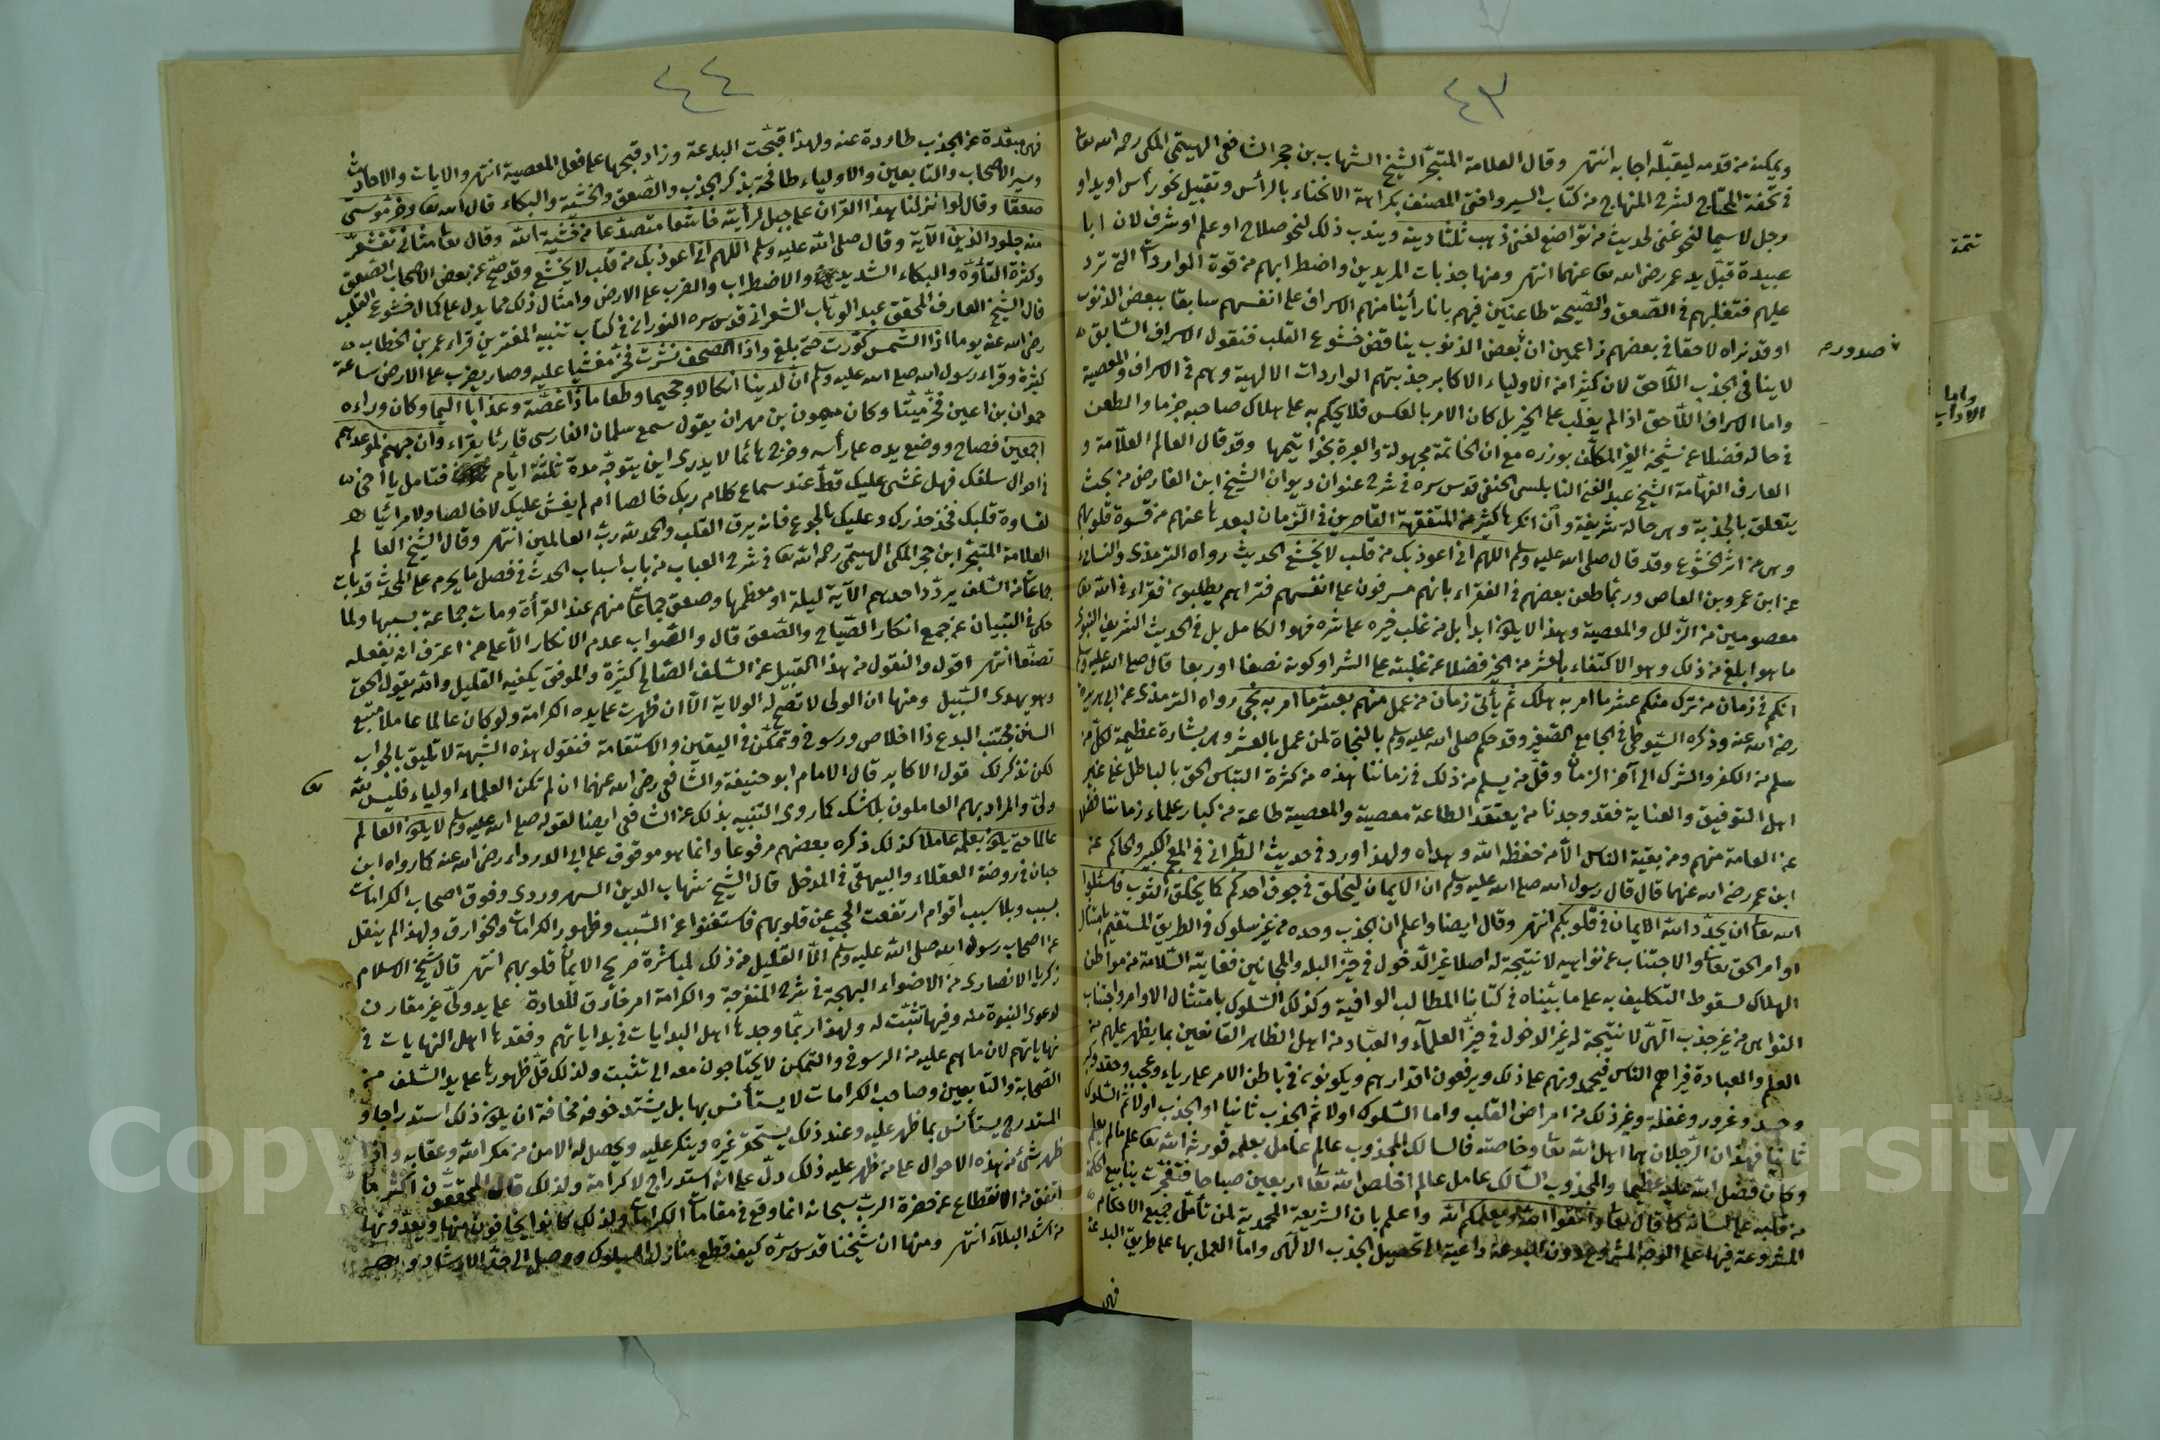 ٤٣
ويمكنه من قدمه ليقبّله اجابه انتهر وقال العلامة المتبحّر الشيخ الشهاب بن حجر الشافعي الهيتمي المكي رحمه الله تعا
في تحفة المحتاج لشرح المنهاج من كتاب السير وافتى المصنف بكراهة الانحناء بالرأس وتقبيل نحو رأس او يد او
رجل لا سيما لنحو غني لحديث من تواضع لغني ذهب ثلثا دينه ويندب ذلك لنحو صلاح او علم او شرف لان ابا
عبيدة قبّل يد عمر رضي الله تعا عنهما انتهر ومنها جذبات المريدين واضطرابهم من قوة الواردات التي ترد
عليهم فتغلبهم في الصّعق والصّيحة طاعنين فيهم بانا رأينا منهم الاسراف على انفسهم سابقا ببعض الذنوب
او قد نراه لاحقا في بعضهم زاعمين ان بعض الذنوب يناقض خشوع القلب فنقول الاسراف السّابق
صدور
لا ينافي الجذب اللّاحق لان كثيرا من الاولياء الاكابر جذبتهم الواردات الالهية وهم في الاسراف والمعصية
واما الاسراف اللّاحق اذا لم يغلب على الخير بل كان الامر بالعكس فلا يحكم به على هلاك صاحبه جزما والطعن
في حاله فضلا عن شيخه الغير المكلّف بوزره مع ان الخاتمة مجهولة والعبرة بخواتيمها وقد قال العالم العلّامة و
العارف الفهّامة الشيخ عبد الغني النابلسي الحنفي قدس سره في شرح عنوان ديوان الشيخ ابن الفارض من بحث
يتعلق بالجذبة وهى حالة شريفة وان انكرها كثير من المتفقهة القاصرين في الزمان لبعدها عنهم من قسوة قلوبهم
وهى من اثر الخشوع وقد قال صلى الله عليه وسلم اللهم اني اعوذ بك من قلب لا يخشع الحديث رواه الترمذي والنسائي
عن ابن عمرو بن العاص وربّما طعن بعضهم في الفقراء بانهم مسرفون على انفسهم فتراهم يطلبون فقراء في الله تعا
معصومين من الزّلل والمعصية وهذا لا يكون ابدا بل من غلب خيره على شره فهو الكامل بل في الحديث الشريف النبوي
ما هو ابلغ من ذلك وهو الاكتفاء بالعشر من الخير فضلا عن غلبته على الشر او كونه نصفا او ربعا قال صلى الله عليه وسلم
انكم في زمان من ترك منكم عشر ما امر به هلك ثم يأتي زمان من عمل منهم بعشر ما امر به نجى رواه الترمذي عن ابي هريرة
رضي الله عنه وذكره السّيوطي في الجامع الصّغير وقد حكم صلى الله عليه وسلم بالنجاة لمن عمل بالعشر وهى بشارة عظيمة لكل من
سلم من الكفر والشرك الى آخر الزمان وقلّ من يسلم من ذلك في زماننا هذه من كثرة التباس الحق بالباطل على غير
اهل التوفيق والعناية فقد وجدنا من يعتقد الطاعة معصية والمعصية طاعة من كبار علماء زماننا فضلا
عن العامة منهم ومن بقية الناس الّا من حفظه الله وهداه ولهذا ورد في حديث الطّبراني في المعجم الكبير والحاكم عن
ابن عمر رضي الله عنهما قال قال رسول الله صلى الله عليه وسلم ان الايمان ليخلق في جوف احدكم كما يخلق الثوب فاسئلوا
الله تعا ان يجدّد الله الايمان في قلوبكم انتهر وقال ايضا واعلم ان الجذب وحده من غير سلوك في الطريق المستقيم بامتثال
اوامر الحق تعا والاجتناب عن نواهيه لا نتيجة له اصلا غير الّدخول في حيّز البله والمجانين فغايته السّلامة من مواطن
الهلاك لسقوط التكليف به على ما بيّناه في كتابنا المطالب الوافية وكذلك السّلوك بامتثال الاوامر واجتناب
النواهى من غير جذب الهّى لا نتيجة له غير الدخول في حيّز العلمآء والعبّاد من اهل الظاهر القانعين بما يظهر عليهم من
العلم والعبادة فيراهم الناس فيحمدونهم على ذلك ويرفعون اقدارهم ويكونون في باطن الامر على رياء وعجب وحقد
وحسد وغرور وغفلة وغير ذلك من امراض القلب واما السّلوك اولا ثم الجذب ثانيا او الجذب اولا ثم السّلوك
ثانيا فهذان الرّجلان هما اهل الله تعا وخاصته فالسالك المجذوب عالم عامل بعلمه فورثه الله تعا علم ما لم يعلم
وكان فضل الله عليه عظيما والمجذوب السّالك عامل عالم اخلص لله تعا اربعين صباحا فتفجّرت ينابيع الحكمة
من قلبه على لسانه كما قال تعا واتقوا الله ويعلمكم الله واعلم بان الشريعة المحمدية لمن تأمّل جميع الاحكام
المشروعة فيها على الوجه المشروع دون البدعة داعية الى تحصيل الجذب الالهى واما العمل بها على طريق البدعة
فهى
تتمة
واما الآداب
٤٤
فهى مبعّدة عن الجذب طاردة عنه ولهذا قبّحت البدعة وزاد قبحها على فعل المعصية انتهر والايات والاحاديث
وسير الاصحاب والتابعين والاولياء طافحة بذكر الجذب والصّعق والخشية والبكاء قال الله تعا وخرّ موسى
صعقا وقال لو انزلنا هذا القران على جبل لرأيته خاشعا متصدّعا من خشية الله وقال تعا مثاني تقشعرّ
منه جلود الذين الآية وقال صلى الله عليه وسلم اللهم اني اعوذ بك من قلب لا يخشع وقد صحّ عن بعض الاصحاب الصّعق
وكثرة التأوّه والبكاء الشديد والاضطراب والضرب على الارض وامثال ذلك مما يدل على كمال خشوع القلب
قال الشيخ العارف المحقق عبد الوهّاب الشعراني قدس سره النوراني في كتاب تنبيه المغترين قراء عمر بن الخطاب
رضي الله عنه يوما اذا الشمس كوّرت حتى بلغ واذا الصحف نشرت فخرّ مغشيا عليه وصار يضرب على الارض ساعة
كثيرة وقراء رسول الله صلى الله عليه وسلم انّ لدينا انكالا وجحيما وطعاما ذا غصّة وعذابا اليما وكان وراءه
حموان بن اعين فخرّ ميتّا وكان ميمون بن مهران يقول سمع سلمان الفارسي قارئا يقراء وان جهنم لموعدهم
اجمعين فصاح ووضع يده على رأسه وخرج هائما لا يدرى اين يتوجّه مدة ثلثة ايّام فتامل يا اخى
في احوال سلفك فهل غشى عليك قطّ عند سماع كلام ربك خالصا ام لم يغش عليك لا خالصا ولا مرائيا
لقساوة قلبك فخذ حذرك وعليك بالجوع فانه يرق القلب والحمد لله ربّ العالمين انتهر وقال الشيخ العالم
العلامة المتبحّر ابن حجر المكى الهيتمى رحمه الله تعا في شرح العباب من باب اسباب الحدث في فصل ما يحرم على المحدث قد بات
جماعة من السّلف يردّد احدهم الآية ليلة او معظمها وصعق جماعة منهم عند القرأة ومات جماعة بسببها ولما
حكى في التبيان عن جمع انكار الصّياح والصّعق قال والصّواب عدم الانكار الّا على من اعترف انه يفعله
تصنّعا انتهر اقول والنقول من هذا القبيل عن السّلف الصّالح كثيرة والموفق يكفيه القليل والله يقول الحق
وهو يهدى السّبيل ومنها ان الولى لا تصحّ له الولاية الّا ان ظهرت على يده الكرامة ولو كان عالما عاملا متبّع
السنن مجتنب البدع ذا اخلاص ورسوخ وتمكّن في اليقين والاستقامة فنقول هذه الشّبهة لا تليق بالجواب
لكن نذكر لك قول الاكابر قال الامام ابو حنيفة والشافعي رضي الله عنهما ان لم تكن العلماء اولياء فليس لله
تعا
ولىّ والمراد بهم العاملون بلا شك كما روى التنبيه بذلك عن الشافعي ايضا لقوله صلى الله عليه وسلم لا يكون العالم
عالما حتى يكون بعلمه عاملا كذلك ذكره بعضهم مرفوعا وانما هو موقوف على ابي الدرداء رضي الله عنه كما رواه ابن
حبان في روضة العقلاء والبيهقي في المدخل قال الشيخ شهاب الدين السهروردى وفوق اصحاب الكرامات
بسبب وبلا سبب اقوام ارتفعت الحجب عن قلوبهم فاستغنوا عن السّبب وظهور الكرامات والخوارق ولهذا لم ينقل
عن اصحاب رسول الله صلى الله عليه وسلم الّا القليل من ذلك لمباشرة صريح الايمان قلوبهم انتهر قال شيخ الاسلام
زكريا الانصارى من الاضواء البهجة في شرح المنفرجة والكرامة امر خارق للعادة على يد ولىّ غير مقارن
لدعوى النبوة منه وفيها تثبّت له ولهذا ربّما وجدها اهل البدايات في بداياتهم وفقدها اهل النهايات في
نهاياتهم لان ما هم عليه من الرسوخ والتمكن لا يحتاجون معه الى تثبت ولذلك قلّ ظهورها على يد السّلف من
الصّحابة والتابعين وصاحب الكرامات لا يستأنس بها بل يشتد خوفه مخافة ان يكون ذلك استدراجا و
المستدرج يستأنس بما ظهر عليه وعند ذلك يستحقر غيره وينكر عليه ويحصل له الامن من مكر الله وعقابه واذا
ظهر شئ من هذه الاحوال على من ظهر عليه ذلك دلّ على انه استدراج لا كرامة ولذلك قال المحققون اكثر ما
اتفق من الانقطاع عن حضرة الربّ سبحانه انما وقع في مقامات الكرامات ولذلك كانوا يخافون منها ويعدونها
من اشد البلآء انتهر ومنها ان شيخنا قدس سرّه كيف قطع منازل السلوك ووصل الى حدّ الارشاد و